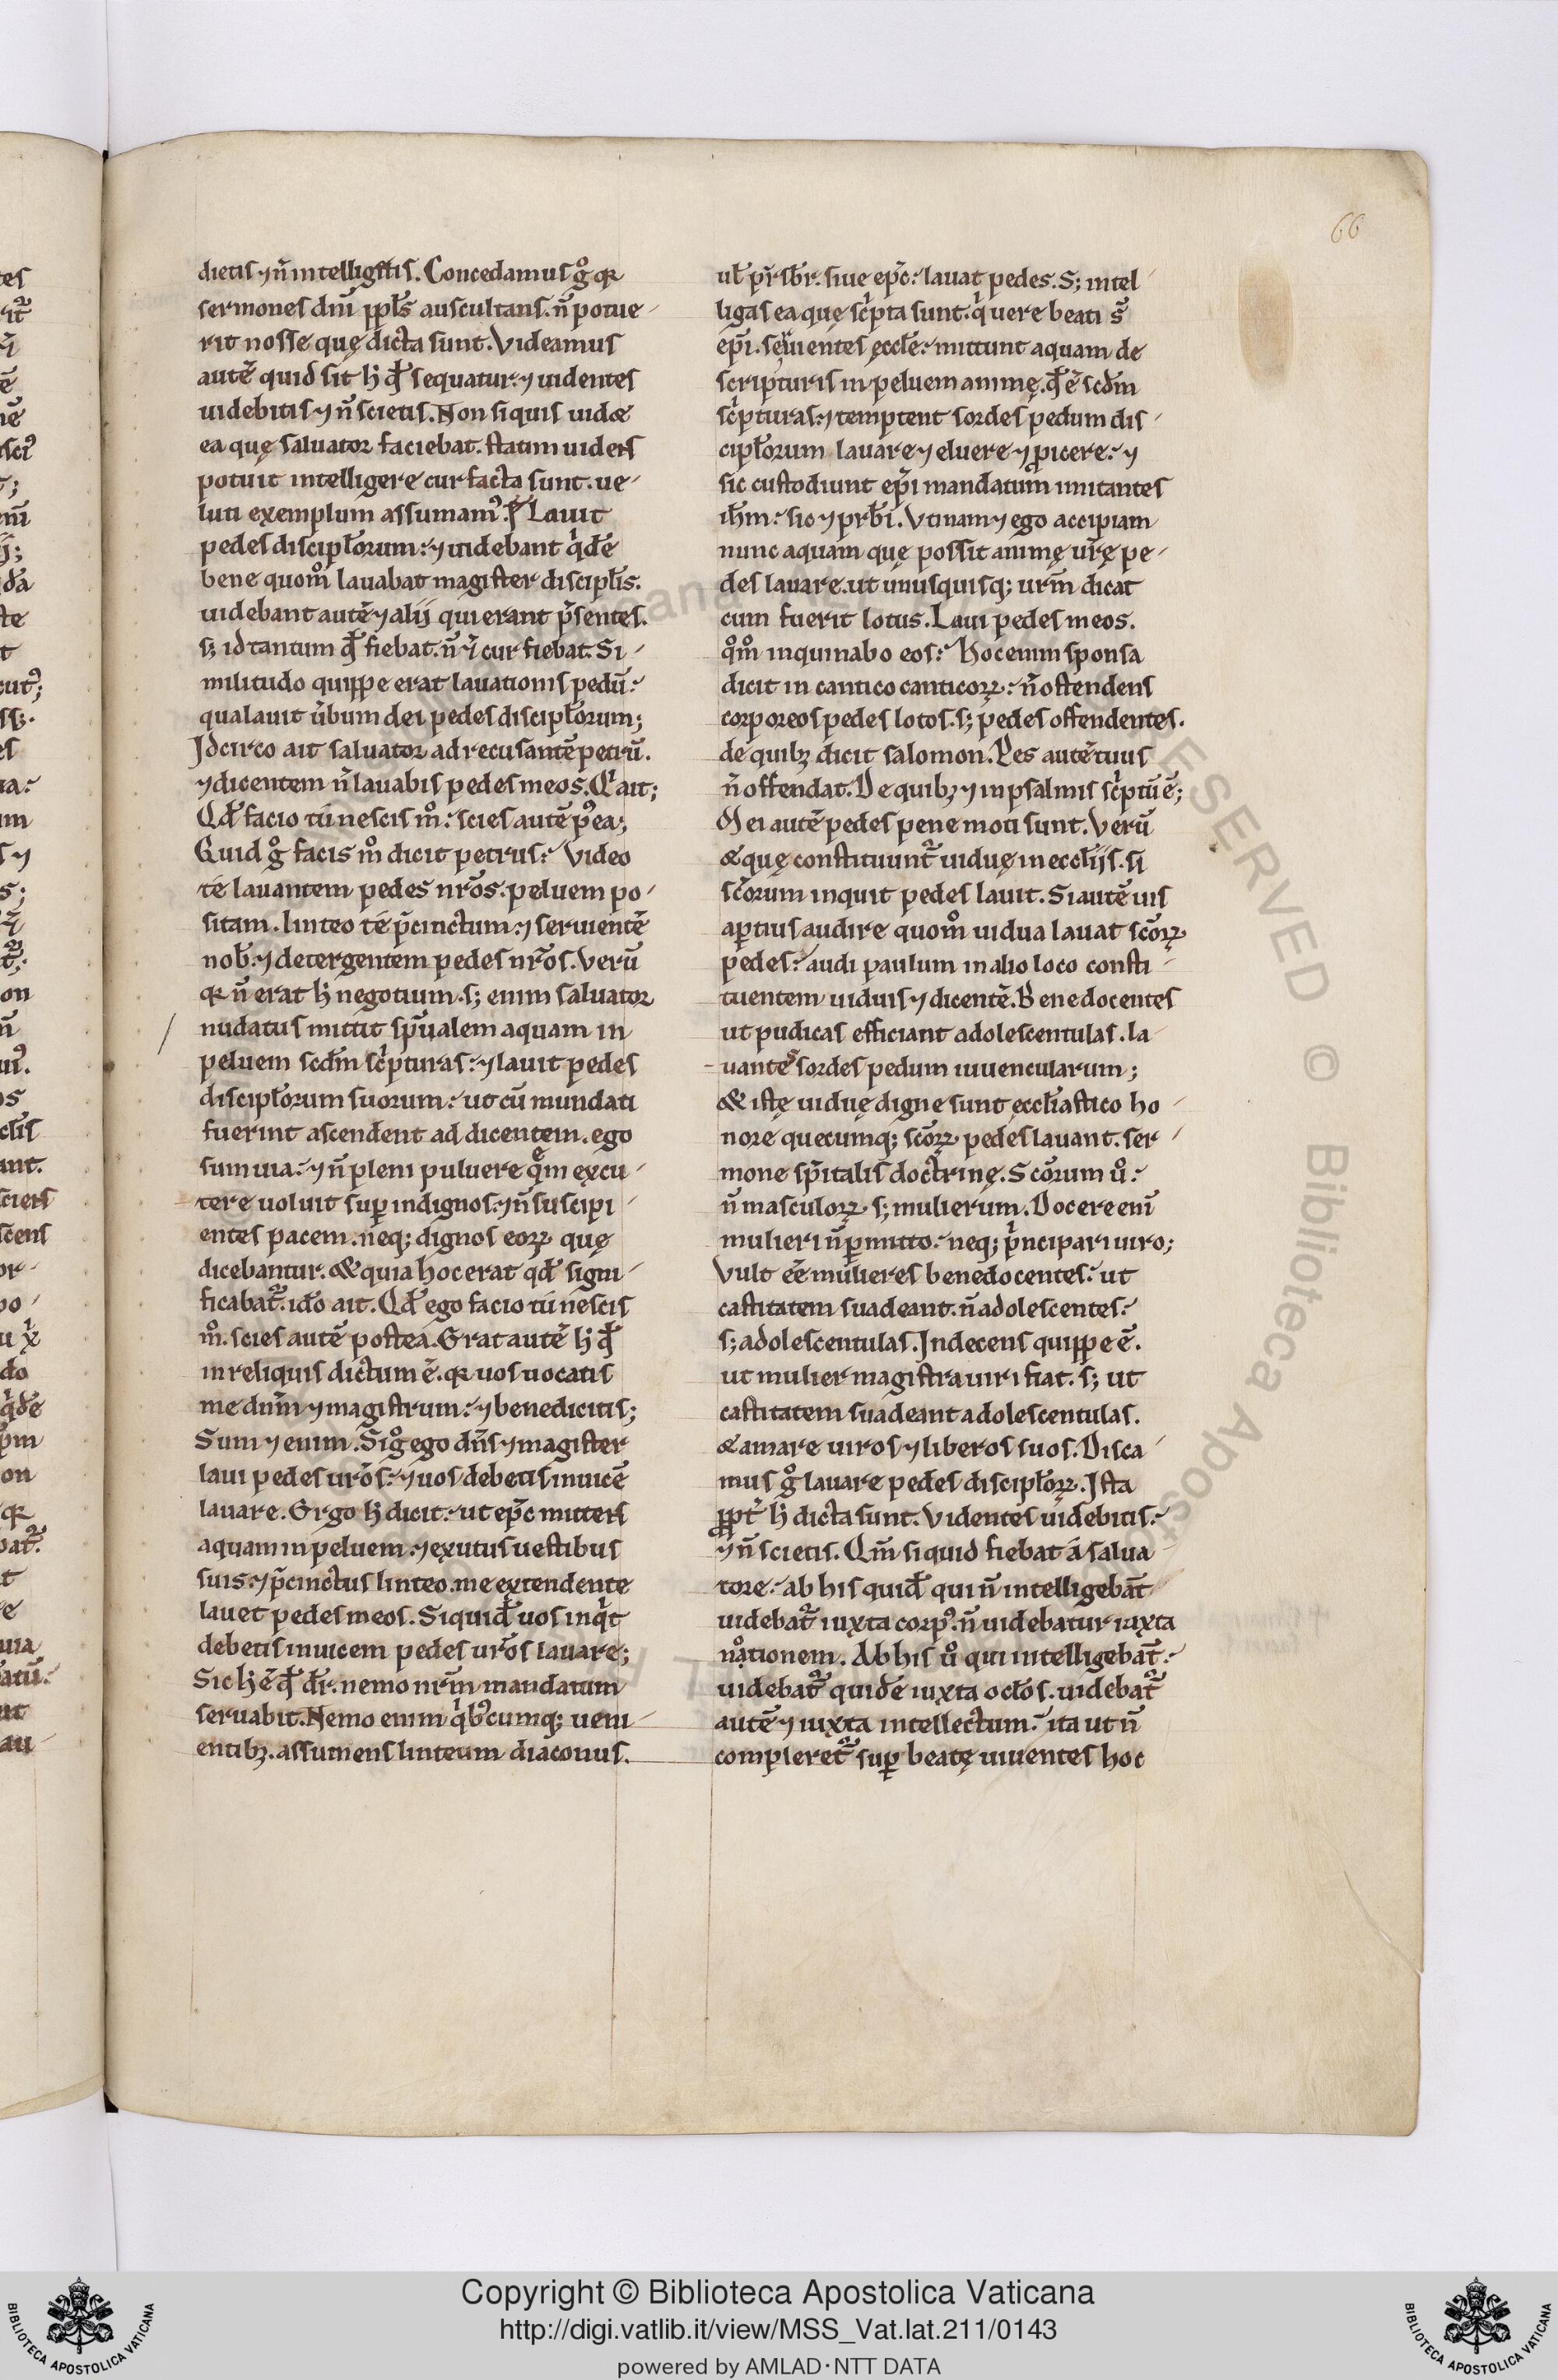 66
dietis ⁊ n̄ intelligetis. Concedamus g̊ qr
sermones dn̄i ppl̄s auscultans. n̄ potue
rit nosse quę dicta sunt. Videamus
autē quid sit h̄ qđ sequatur. ⁊ uidentes
uidebitis ⁊ n̄ scietis. Non siquis uidæ
ea quę saluator faciebat. statim uidens
potuit intelligere cur facta sunt. ue
luti exemplum assumam᷒. Lauit
pedes discipl̄orum. ⁊ uidebant qͥdē
bene quom̊ lauabat magister discipl̄is.
uidebant autē ⁊ alij qui erant p̄sentes.
s; id tantum qđ fiebat. n̄ ⁊ cur fiebat. Si
militudo quippe erat lauationis pedū.
qua lauit ūbum dei pedes discipl̄orum;
Idcirco ait saluator ad recusantē petrū.
⁊ dicentem n̄ lauabis pedes meos. Qͥ ait;
Qđ facio tú nescis m̊. scies autē p᷒ea;
Quid g̊ facis m̊ dicit petrus. Video
té lauantem pedes nr̄os. peluem po
sitam. linteo té p̄cinctum. ⁊ seruientē
nob̄. ⁊ detergentem pedes nr̄os. Verū
qr n̄ erat h̄ negotium. s; enim saluator
nudatus mittit sp̄ualem aquam in
peluem scđm scͥpturas. ⁊ lauit pedes
discipl̄orum suorum. ut cū mundati
fuerint ascendent ad dicentem. ego
sum uia. ⁊ n̄ pleni puluere quem excu
tere uoluit suꝑ indignos. ⁊ n̄ suscipi
entes pacem. neq; dignos eoꝝ quę
dicebantur. & quia hoc erat qđ signi
ficabat᷑. iđo ait. Qđ ego facio tú nescis
m̊. scies autē postea. Erat autē h̄ qđ
in reliquis dictum ē. qr uos uocatis
me dn̄m ⁊ magistrum. ⁊ benedicitis;
Sum ⁊ enim. Si g̊ ego dn̄s ⁊ magister
laui pedes ur̄os. ⁊ uos debetis inuicē
lauare. Ergo h̄ dicit. ut ep̄c mittens
aquam in peluem. ⁊ exutus uestibus
suis. ⁊ p̄cinctus linteo. me extendente
lauet pedes meos. Si quiđ uos inqͥt
debetis inuicem pedes ur̄os lauare;
Sic h̄ ē qđ dr̄. nemo nr̄m mandatum
seruabit. Nemo enim qͥb᷒cumq; ueni
entibꝫ. assumens linteum diaconus.
ul̄ pr̄sbr̄. siue ep̄c. lauat pedes. S; intel
ligas ea quę scͥpta sunt. qͥ uere beati s̄
ep̄i. seruientes ęccl̄e. mittunt aquam de
scripturis in peluem animę. qđ ē scđm
scͥpturas. ⁊ temptent sordes pedum dis
cipl̄orum lauare ⁊ eluere ⁊ ꝓicere. ⁊
sic custodiunt ep̄i mandatum imitantes
ih̄m. sic ⁊ prb̄i. Vtinam ⁊ ego accipiam
nunc aquam quę possit animę ur̄ę pe
des lauare. ut unusquisq; ur̄m dicat
cum fuerit lotus. Laui pedes meos.
q̊m̊ inquinabo eos. Hoc enim sponsa
dicit in cantico canticoꝝ. n̄ ostendens
corporeos pedes lotos. s; pedes offendentes.
de quibꝫ dicit salomon. Pes autē tuus
n̄ offendat. De quibꝫ ⁊ in psalmis scͥptū ē;
Mei autē pedes pene moti sunt. Verū
& quę constituunt᷑ uiduę in eccl̄ijs. si
sc̄orum inquit pedes lauit. Si autē uis
aꝑtius audire quom̊ uidua lauat sc̄oꝝ
pedes. audi paulum in alio loco consti
tuentem uiduis ⁊ dicentē. Bene docentes
ut pudicas efficiant adolescentulas. la
uantes sordes pedum iuuencularum;
& istę uiduę digne sunt ęccl̄iastico ho
nore quecumq; sc̄oꝝ pedes lauant. ser
mone sp̄italis doctrinę. Sc̄orum ů.
n̄ masculoꝝ s; mulierum. Docere enī
mulieri n̄ ꝑmitto. neq; pͥncipari uiro;
Vult eē mulieres bene docentes. ut
castitatem suadeant. n̄ adolescentes.
s; adolescentulas. Indecens quippe ē.
ut mulier magistra uiri fiat. s; ut
castitatem suadeant adolescentulas.
& amare uiros ⁊ liberos suos. Disca
mus g̊ lauare pedes discipl̄oꝝ. Ista
ꝓpt̄ h̄ dicta sunt. Videntes uidebitis.
⁊ n̄ scietis. Qm̄ siquid fiebat á salua
tore. ab his quiđ qui n̄ intelligebāt
uidebat᷑ iuxta corp᷒. n̄ uidebatur iuxta
nåtionem. Ab his ů qui intelligebāt.
uidebat᷑ quidē iuxta ocl̄os. uidebat᷑
autē ⁊ iuxta intellectum. ita ut n̄
compleret᷑ suꝑ beatę uiuentes hoc
Copyright © Biblioteca Apostolica Vaticana
http://digi.vatlib.it/view/MSS_Vat.lat.211/0143
powered by AMLAD·NTT DATA
BIBLIOTECA APOSTOLICA VATICANA
BIBLIOTECA APOSTOLICA VATICANA